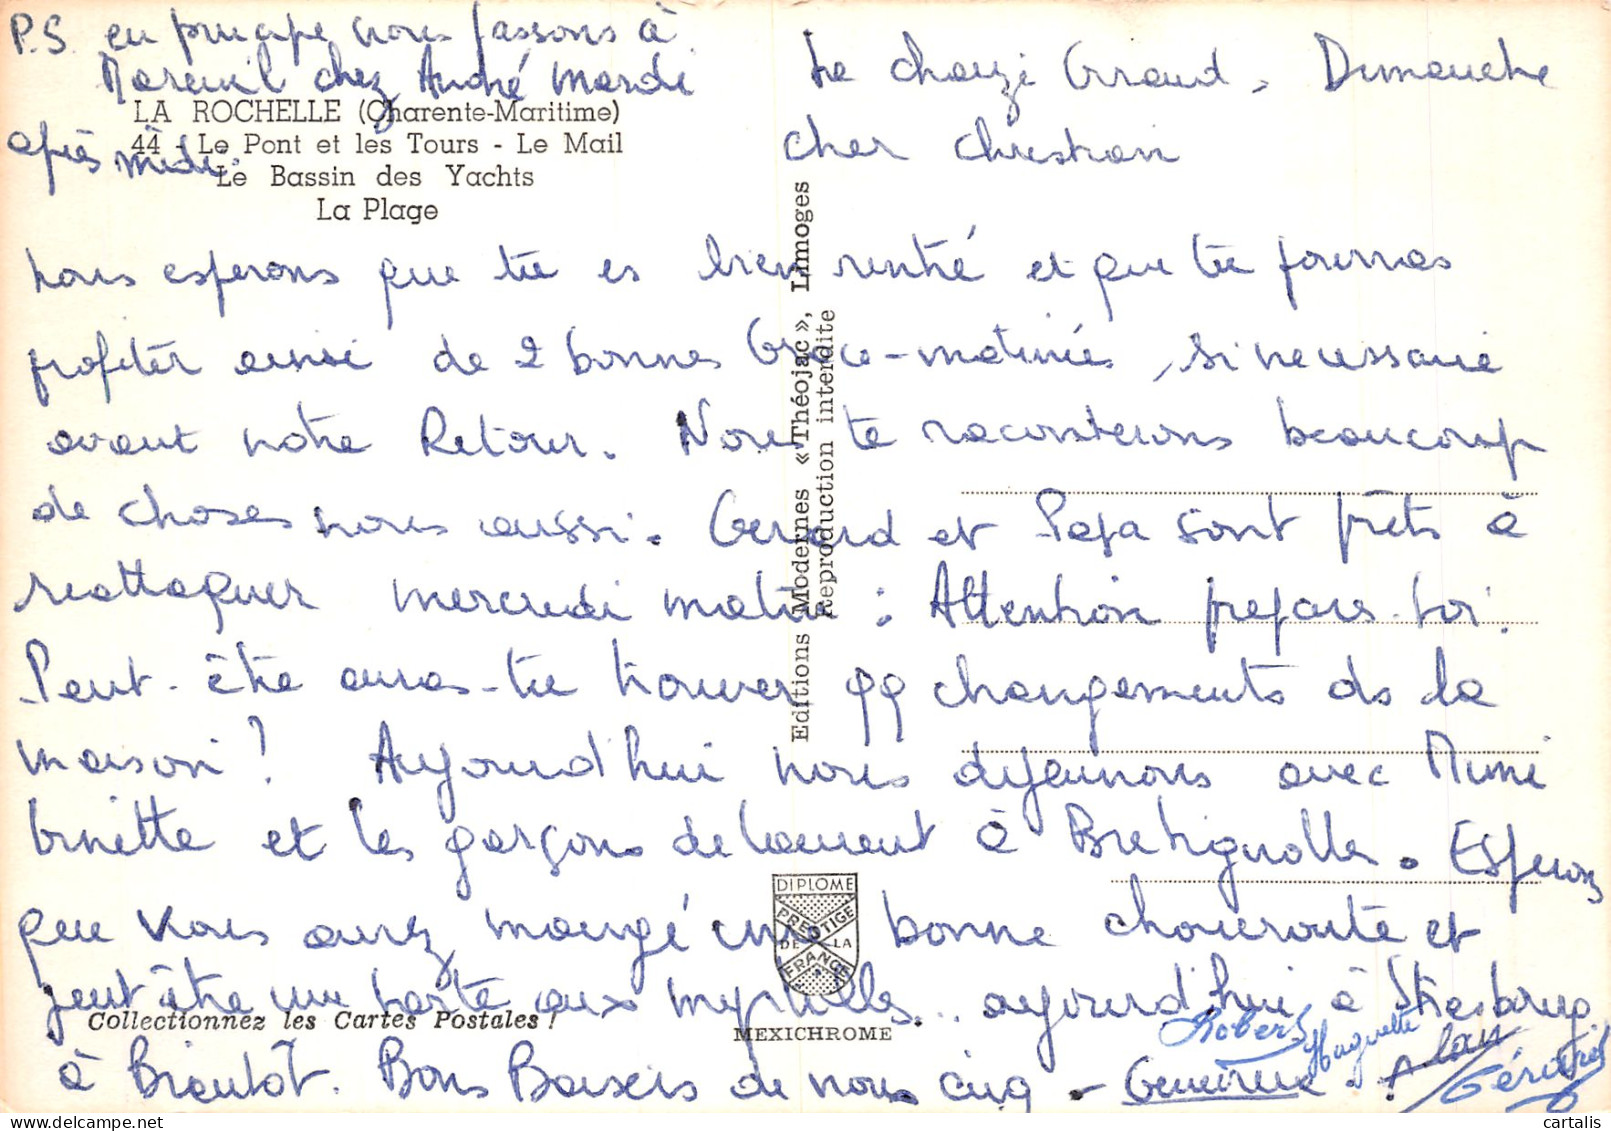 P.S en principe nous passons à
Mareuil chez André Mardi
après midi.
LA ROCHELLE (Charente-Maritime)
44 - Le Pont et les Tours - Le Mail
Le Bassin des Yachts
La Plage
La Chaize Giraud, Dimanche
Cher Christian
nous esperons que tu es bien rentré et que tu pourras
profiter ainsi de 2 bonnes Grace-matinées, si necessaire
avant notre Retour. Nous te raconterons beaucoup
de choses nous aussi. Gerard et Papa sont prêts à
reattaquer mercredi matin : Attention prepare-toi!
Peut-être auras-tu trouver qq changements ds la
maison? Aujourd'hui nous dejeunons avec Mimi
Ginette et les garçons de Laurent à Bretignolles. Esperons
que vous aurez mangé une bonne choucroute et
peut être une tarte aux myrtilles... aujourd'hui à Strasbourg.
à Bientôt. Bons Baisers de nous cinq - Geneviève.
Robert Huguette Alan Gérard
Editions Modernes «Théojac», Limoges
Reproduction interdite
DIPLOME
PRESTIGE
DE LA
FRANCE
Collectionnez les Cartes Postales !
MEXICHROME
cartalis